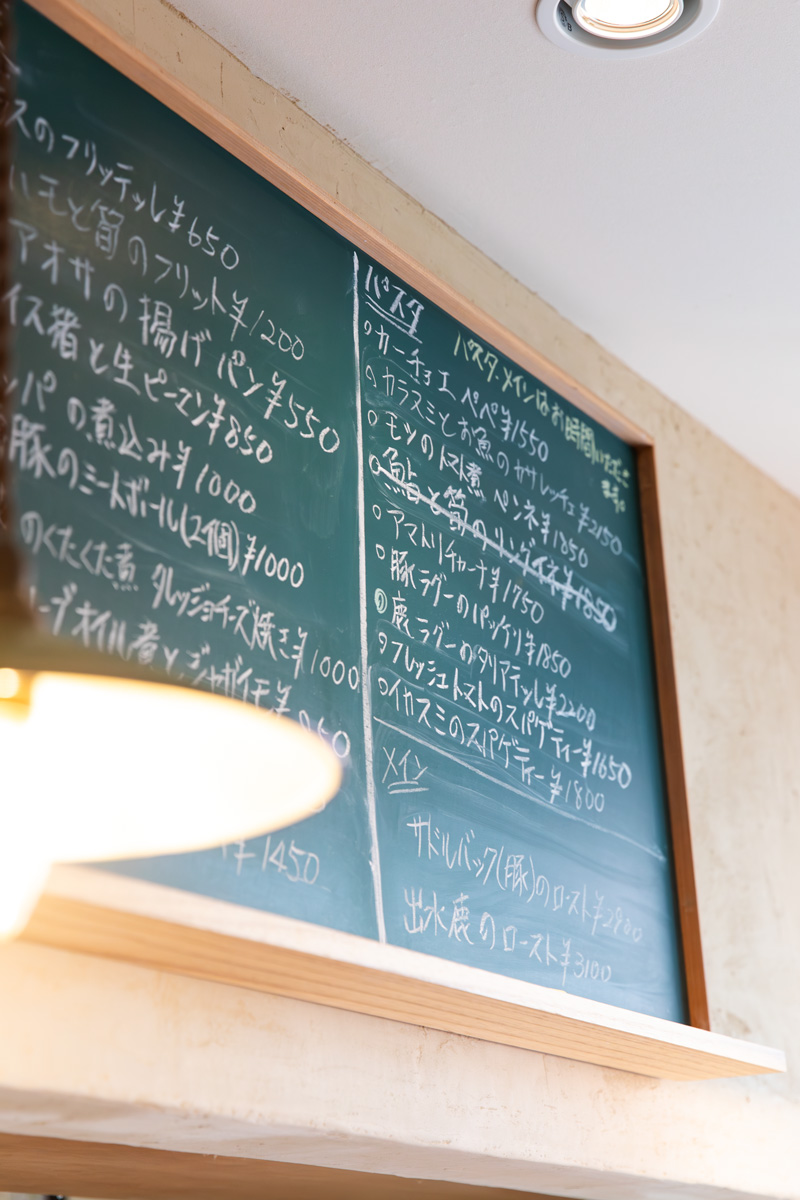 スのフリッテッレ ¥650
ハモと筍のフリット ¥1200
アオサの揚げパン ¥550
イス猪と生ピーマン ¥850
ッパの煮込み ¥1000
豚のミートボール(2個) ¥1000
のくたくた煮 タレッジョチーズ焼き ¥1000
ーブオイル煮とジャガイモ ¥
50
¥1450
パスタ
パスタ・メインはお時間いただきます。
○カーチョエペペ ¥1550
○カラスミとお魚のカサレッチェ ¥2150
○モツのトマト煮 ペンネ ¥1850
○鮎と筍のリングイネ ¥1850
○アマトリチャーナ ¥1750
○豚ラグーのパッケリ ¥1850
○鹿ラグーのタリアテッレ ¥2200
○フレッシュトマトのスパゲティー ¥1650
○イカスミのスパゲティー ¥1800
メイン
サドルバック(豚)のロースト ¥2900
出水鹿のロースト ¥3100